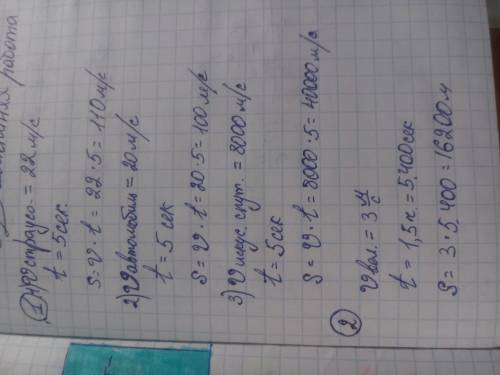 работа
1) 1) v страуса. = 22 м/с
t = 5 сек.
S = v · t = 22 · 5 = 110 м/с
2) v автомобиль = 20 м/с
t = 5 сек
S = v · t = 20 · 5 = 100 м/с
3) v искус. спут. = 8000 м/с
t = 5 сек
S = v · t = 8000 · 5 = 40000 м/с
2
v вол. = 3 м/с
t = 1,5 ч. = 5.400 сек
S = 3 · 5.400 = 16200 м